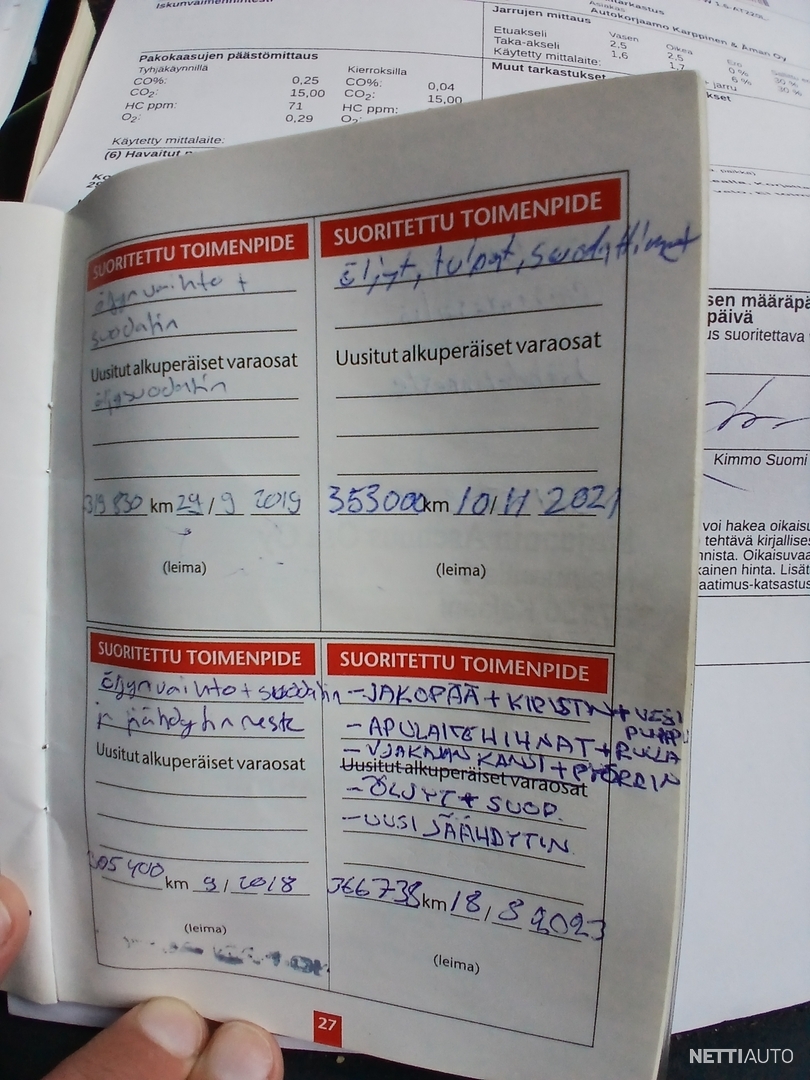 Iskunvaimennintesti
Pakokaasujen päästömittaus
Tyhjäkäynnillä Kierroksilla
CO%: 0,25 CO%: 0,04
CO2: 15,00 CO2: 15,00
HC ppm: 71 HC ppm:
O2: 0,29 O2:
Käytetty mittalaite:
(6) Havaitut
Asiakas
Autokorjaamo Karppinen & Åman Oy
Jarrujen mittaus
Vasen Oikea Ero
Etuakseli 2,5 2,5 0 %
Taka-akseli 1,6 1,7 6 %
Käytetty mittalaite:
Muut tarkastukset
SUORITETTU TOIMENPIDE
öljynvaihto +
suodatin
Uusitut alkuperäiset varaosat
öljysuodatin
319 830 km 29 / 9 2019
(leima)
SUORITETTU TOIMENPIDE
öljyt, tulpat, suodattimet
Uusitut alkuperäiset varaosat
353000 km 10 / 11 2021
(leima)
SUORITETTU TOIMENPIDE
öljynvaihto + suodatin
jäähdytinneste
Uusitut alkuperäiset varaosat
305 400 km 9 / 2018
(leima)
SUORITETTU TOIMENPIDE
- JAKOPÄÄ + KIRISTIN + VESI
PUMPPU
- APULAITEHIHNAT + RULLA
- VJAKAJAN KANSI + PYÖRRIN
Uusitut alkuperäiset varaosat
- ÖLJYT + SUOD.
- UUSI JÄÄHDYTIN
366738 km 18 / 8 2023
(leima)
27
sen määräpä
päivä
us suoritettava
Kimmo Suomi
voi hakea oikaisu
tehtävä kirjallises
nnista. Oikaisuvaa
kainen hinta. Lisät
aatimus-katsastus
NETTIAUTO